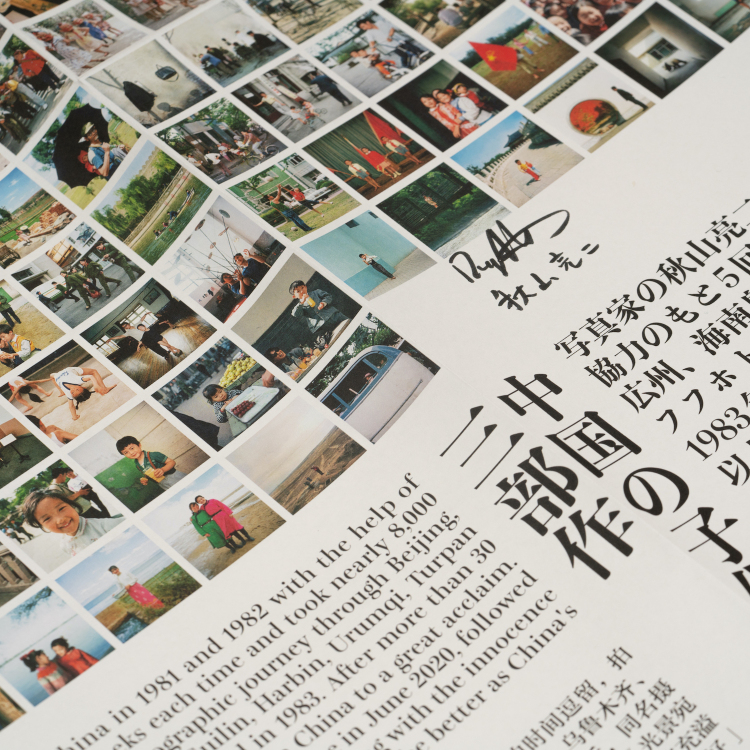 秋山亮二
写真家の秋山亮
協力のもと5回
広州、海南
フフホト
1983
以
中国の子
三部作
in 1981 and 1982 with the help of
each time and took nearly 8,000
journey through Beijing,
Guilin, Harbin, Urumqi, Turpan
in 1983. After more than 30
China to a great acclaim.
in June 2020, followed
with the innocence
better as China's
时间逗留，拍
乌鲁木齐、
同名摄
光景宛
充溢